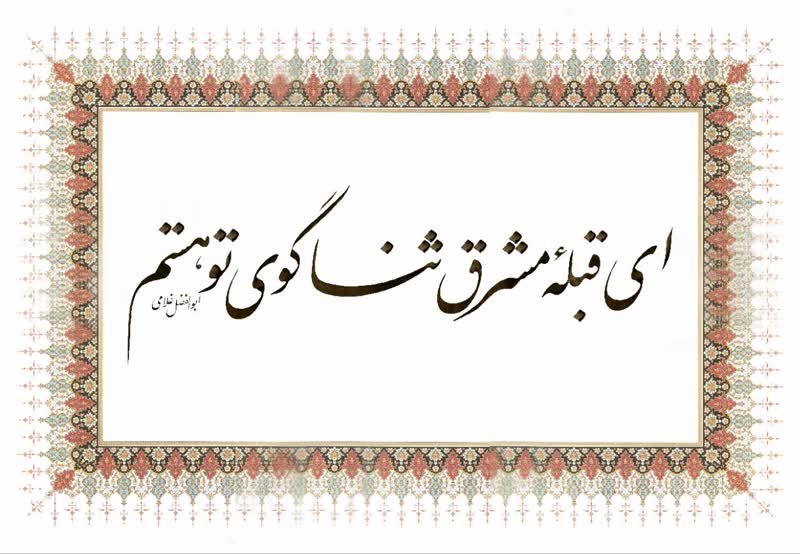 ای قبلهٔ مشرق ثناگوی تو هستم
ابوالفضل غلامی